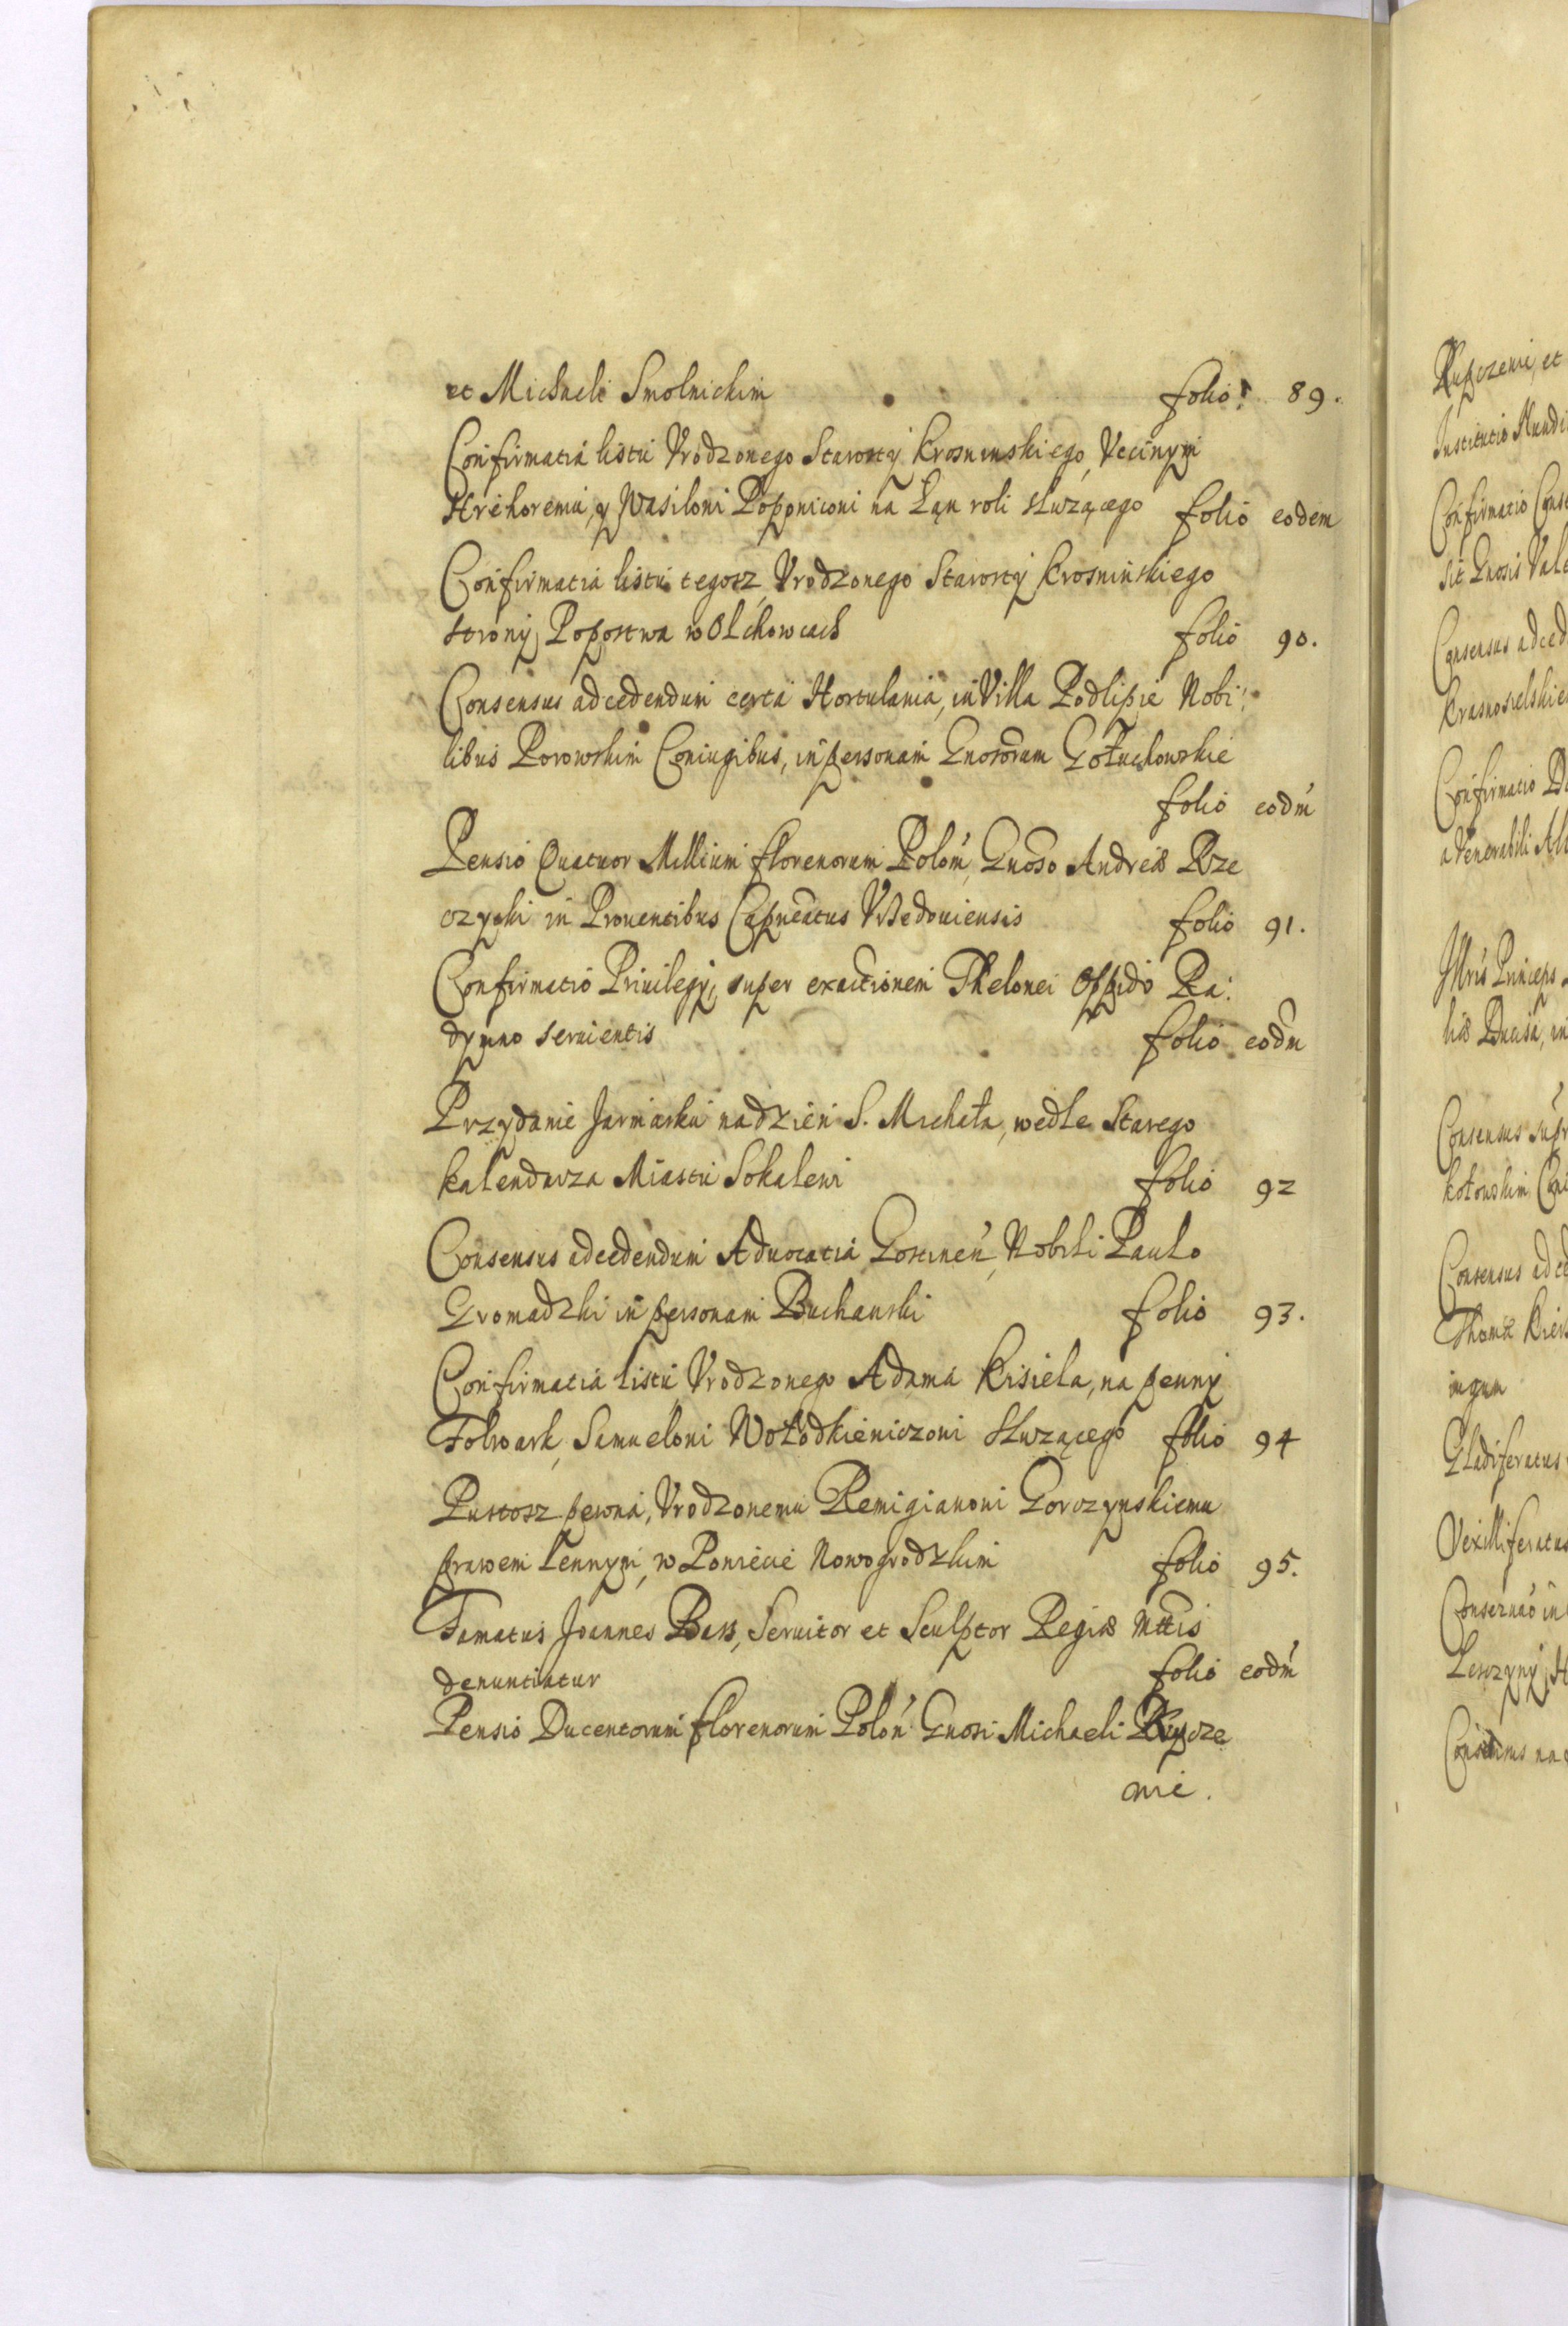 et Michaeli Smolnickim folio 89.
Confirmatia listu Vrodzonego Starosty Krosninskiego Vcciwym
Hrehoremu, y Wasiloni Poponiconi na Łąn roli słuzącego folio eodem
Confirmatia listu tegosz Vrodzonego Starosty Krosninskiego
strony Popostwa w Olchowcach folio 90.
Consensus ad cedendum certa Hortulania, in Villa Podlipie Nobi:
libus Porowskim Coniugibus, in personam Gnosorum Gołuchowskie
folio eodm
Pensio Quatuor Millium florenorum Polom, Gnoso Andreæ Rze
czycki in Prouentibus Capneatus Vrzedouiensis folio 91.
Confirmatio Priuilegij, super exactionem Thelonei Oppido Ra:
dymno seruientis folio eodm
Przydanie Jarmarku na dzien S. Michała, wedle Starego
kalendarza Miastu Sokalowi folio 92
Consensus ad cedendum Aduocatia Gostinen, Nobili Paulo
Gromadzki in personam Buchanski folio 93.
Confirmatia listu Vrodzonego Adama Kisiela, na pewny
Folwark Samueloni Wołodkiewiczoni słuzącego folio 94
Pustosz pewna, Vrodzonemu Remigianoni Gorczynskiemu
prawem Lennym, w Powiecie Nowogrodzkim folio 95.
Famatus Joannes Bass, Seruitor et Sculptor Regiæ Mttis
denuntiatur folio eodm
Pensio Ducentorum florenorum Polon Gnosi Michaeli Rupcze
wie.
Rupczewi, et
Institutio Nundi
Confirmatio Cons
sit Gnosis Vale
Consensus ad ced
Krasnosielskie
Confirmatio
a Venerabili Al
Illris Princeps
Consensus sup
Consensus ad ce
Thomæ
ingum
Gladiferatus
Vexilliferatus